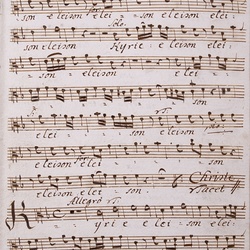 son eleison elei
son eleison Kyrie eleison elei
son eleison elei
son
elei son eleison
eleison elei son
eleison eleison. Christe
tacet
Allegro
Kyrie elei son elei